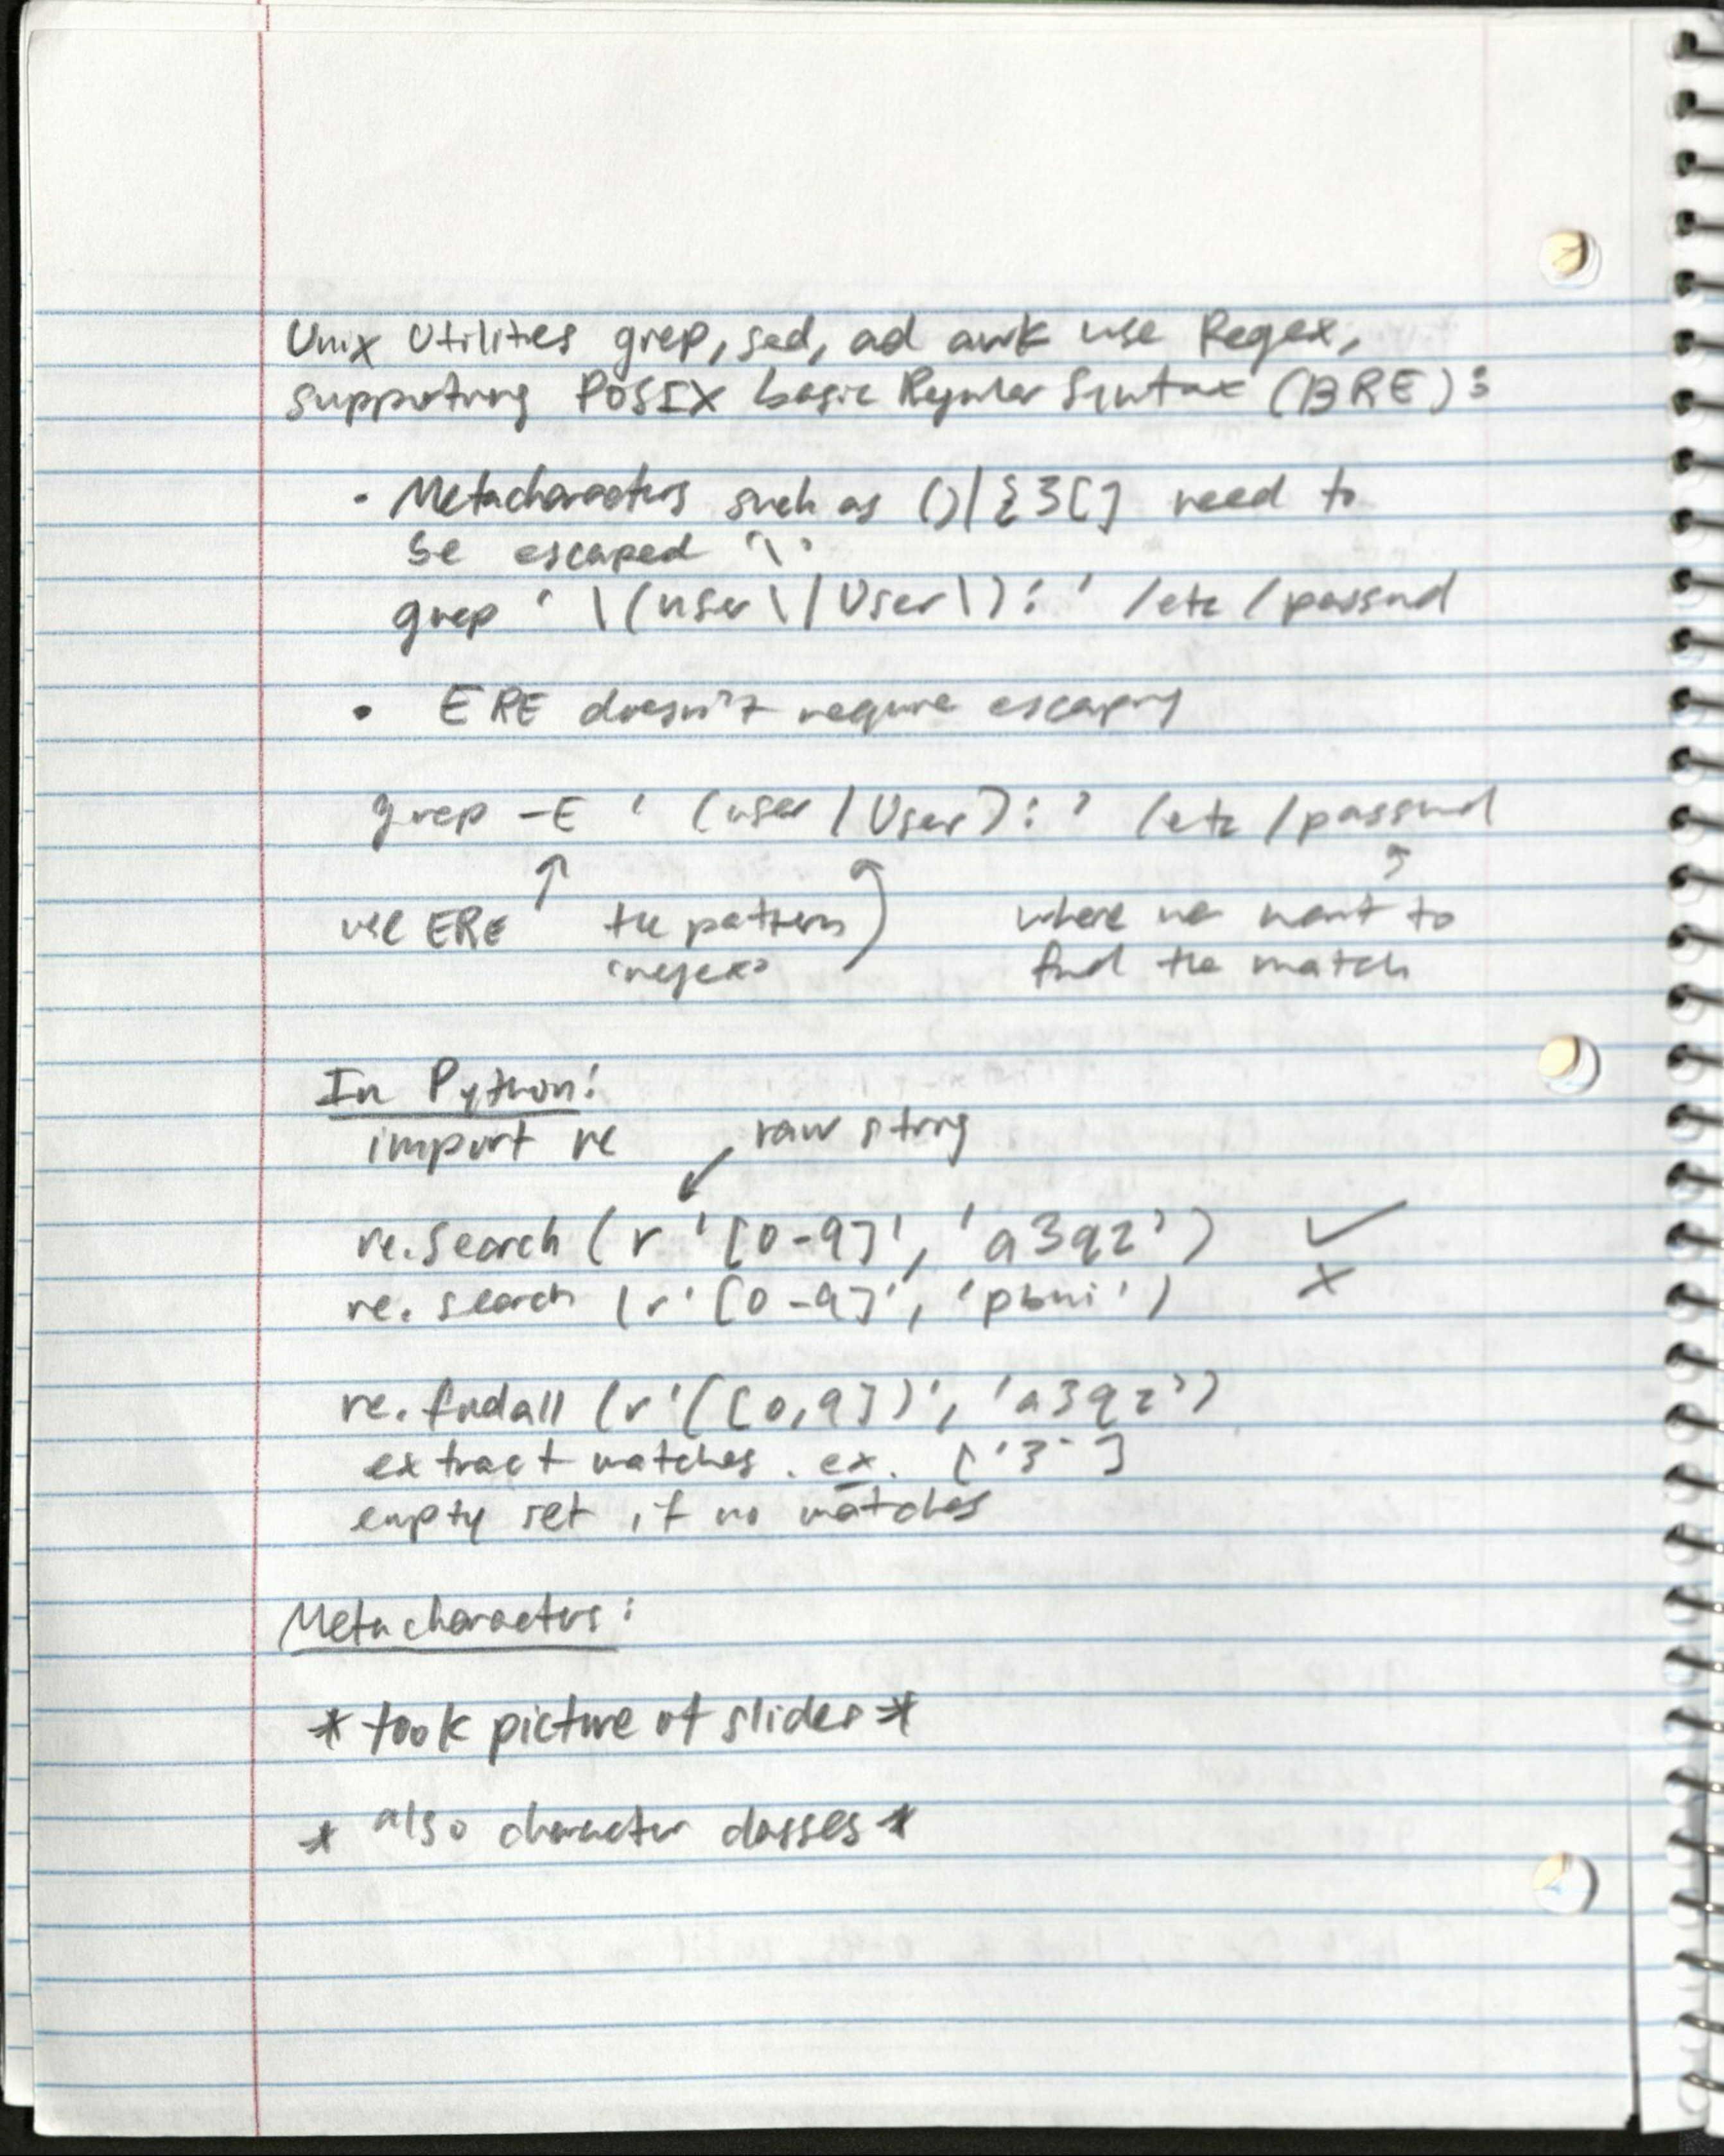 Unix Utilities grep, sed, ad awk use Regex,
supporting POSIX basic Regular Syntax (BRE):
• Metacharacters such as ()|{}[] need to
be escaped '\'
grep '\(user\|User\):' /etc/passwd
• ERE doesn't require escaping
grep -E '(user|User):' /etc/passwd
use ERE the pattern where we want to
'regex' find the match
In Python:
import re raw string
re.search(r'[0-9]', 'a3qz') ✓
re.search(r'[0-9]', 'pbui') ×
re.findall(r'([0,9])', 'a3qz')
extract matches. ex. ['3']
empty set if no matches
Metacharacters:
* took picture of slides *
* also character classes *